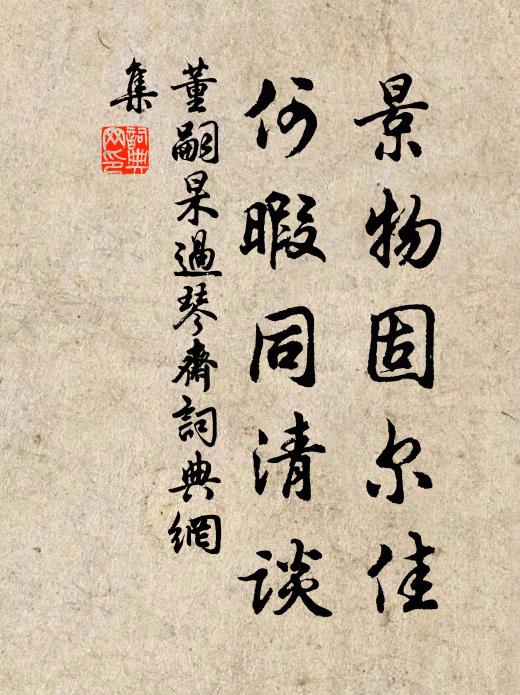 景物固尔佳
何暇同清谈
董嗣杲過琴齋詞典網
集
詞典網印